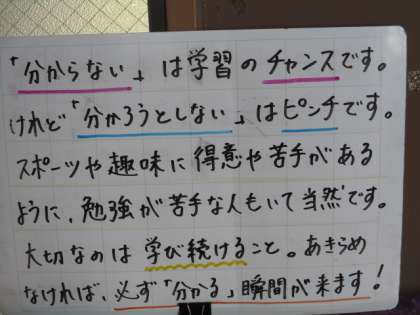 「分からない」は学習のチャンスです。
けれど「分かろうとしない」はピンチです。
スポーツや趣味に得意や苦手がある
ように、勉強が苦手な人もいて当然です。
大切なのは学び続けること。あきらめ
なければ、必ず「分かる」瞬間が来ます!